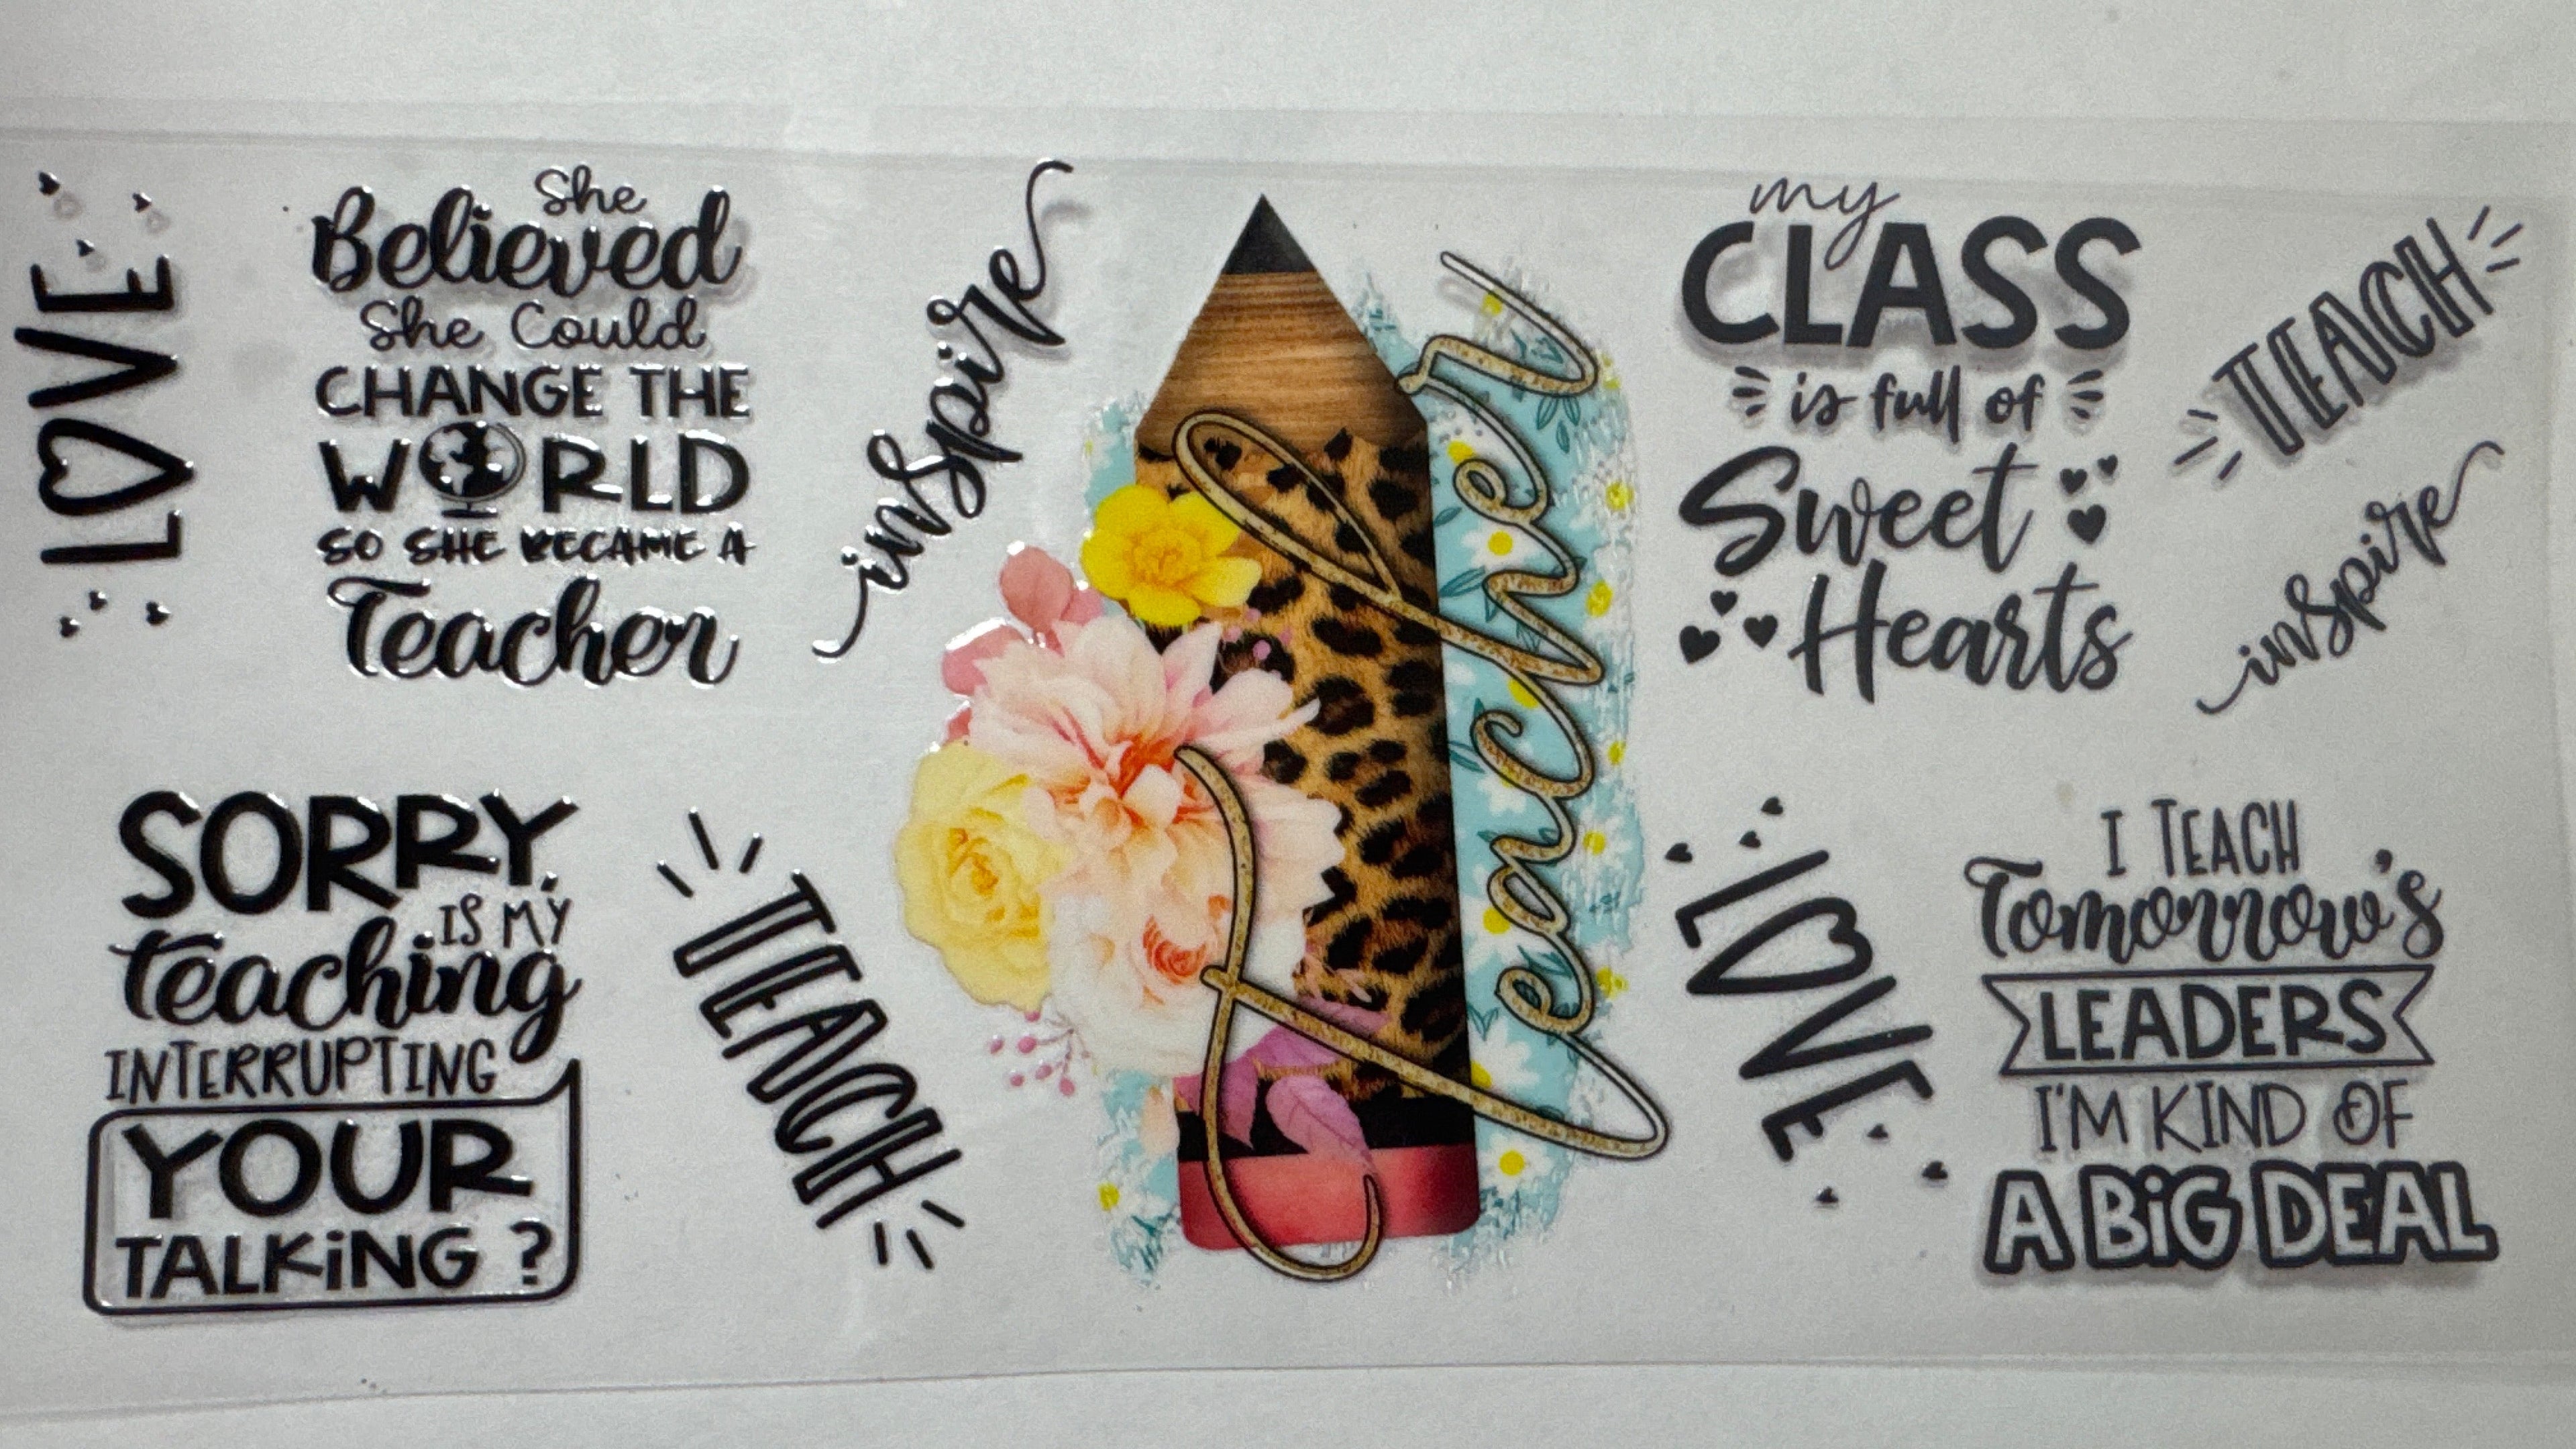 LOVE
She
Believed
She Could
CHANGE THE
WORLD
SO SHE BECAME A
Teacher
inspire
SORRY,
IS MY
teaching
INTERRUPTING
YOUR
TALKiNG ?
TEACH
Teacher
my
CLASS
is full of
Sweet
Hearts
TEACH
inspire
LOVE
I TEACH
Tomorrow's
LEADERS
I'M KIND OF
A BiG DEAL